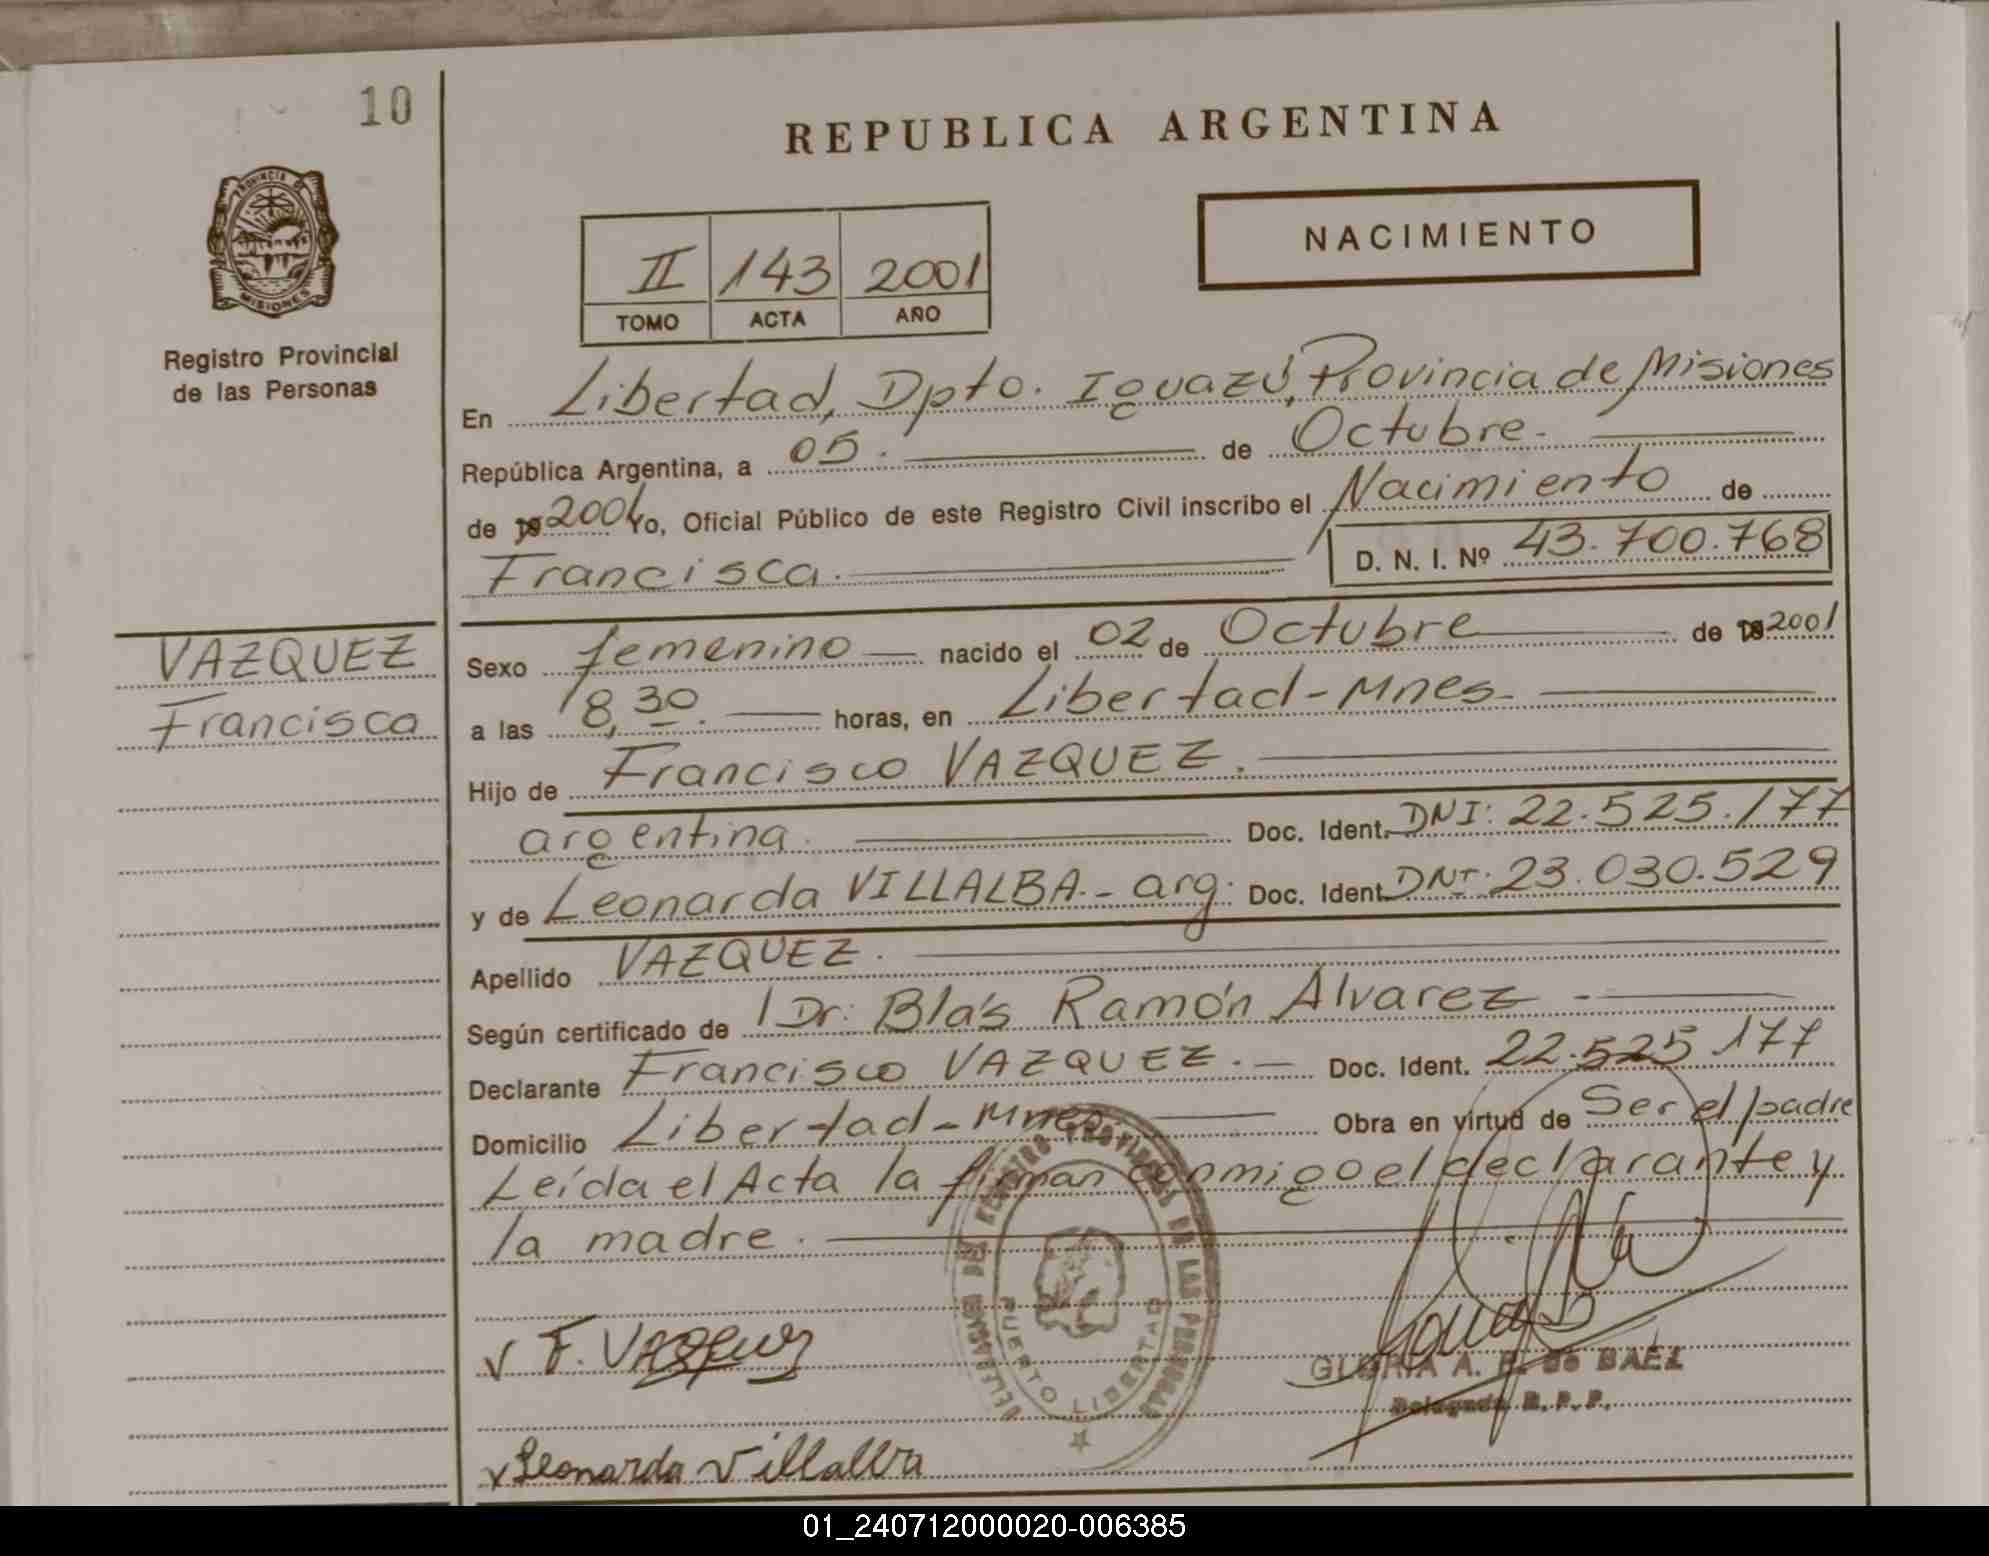 10
REPUBLICA ARGENTINA
PROVINCIA DE
MISIONES
Registro Provincial
de las Personas
NACIMIENTO
II 143 2001
TOMO ACTA AÑO
En Libertad, Dpto. Iguazú, Provincia de Misiones
República Argentina, a 05. de Octubre.
de 19 2001 Yo, Oficial Público de este Registro Civil inscribo el Nacimiento de
Francisca. D. N. I. Nº 43.700.768
VAZQUEZ
Francisca
Sexo femenino nacido el 02 de Octubre de 19 2001
a las 18,30. horas, en Libertad-Mnes-
Hijo de Francisco VAZQUEZ.
argentina. Doc. Ident. DNI: 22.525.177
y de Leonarda VILLALBA.- arg. Doc. Ident. DNI: 23.030.529
Apellido VAZQUEZ.
Según certificado de Dr. Blás Ramón Alvarez -
Declarante Francisco VAZQUEZ. Doc. Ident. 22.525.177
Domicilio Libertad-Mnes Obra en virtud de Ser el padre
Leída el Acta la firman conmigo el declarante y
la madre.
REGISTRO PROVINCIAL DE LAS PERSONAS
PUERTO LIBERTAD
F. VAZQUEZ
GLORIA A. de BAEZ
Delegada R.P.P.
Leonarda Villalba
01_240712000020-006385